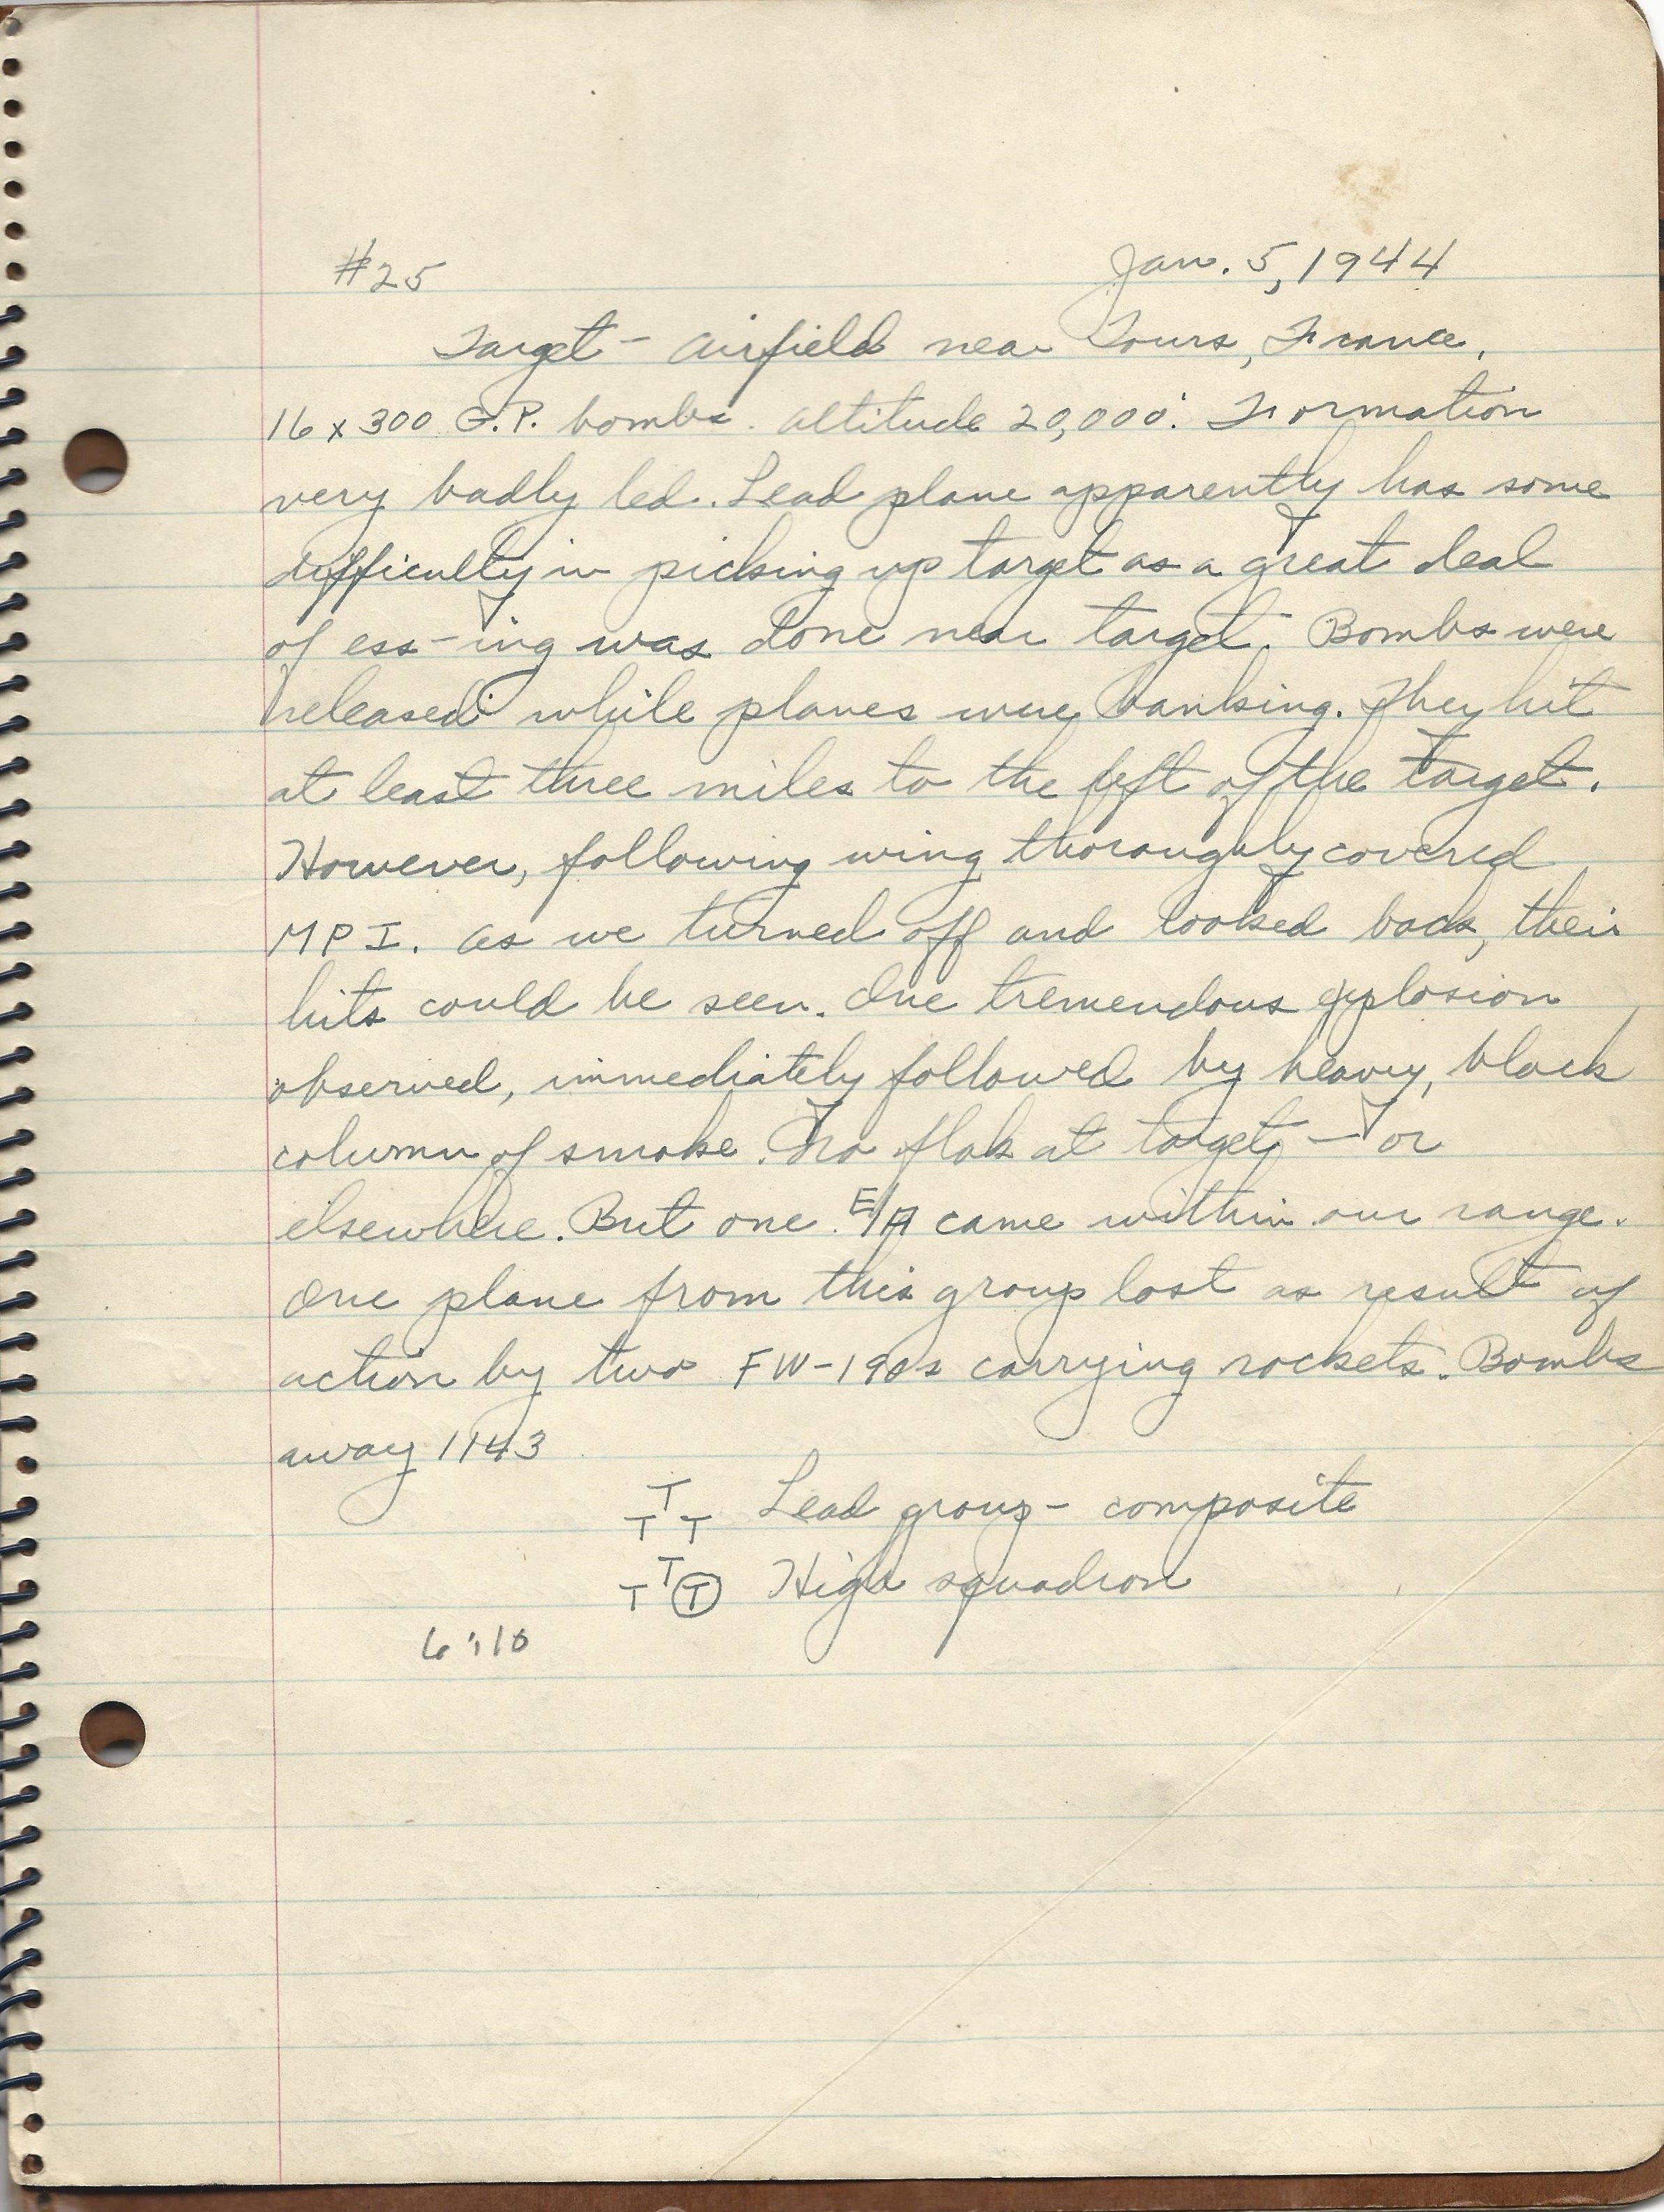 #25 Jan. 5, 1944
Target - Airfield near Tours, France.
16 x 300 G.P. bombs. Altitude 20,000'. Formation
very badly led. Lead plane apparently has some
difficulty in picking up target as a great deal
of ess-ing was done near target. Bombs were
released while planes were banking. They hit
at least three miles to the left of the target.
However, following wing thoroughly covered
MPI. As we turned off and looked back, their
hits could be seen. One tremendous explosion
observed, immediately followed by heavy, black
column of smoke. No flak at target - or
elsewhere. But one E/A came within our range.
One plane from this group lost as result of
action by two FW-190s carrying rockets. Bombs
away 1143
T Lead group - composite
T T
T High squadron
T T
6:10